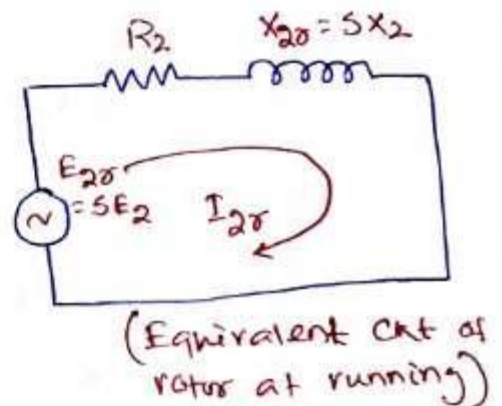 R₂
X₂ᵣ = SX₂
E₂ᵣ
= SE₂
I₂ᵣ
~
(Equivalent Ckt of
rotor at running)